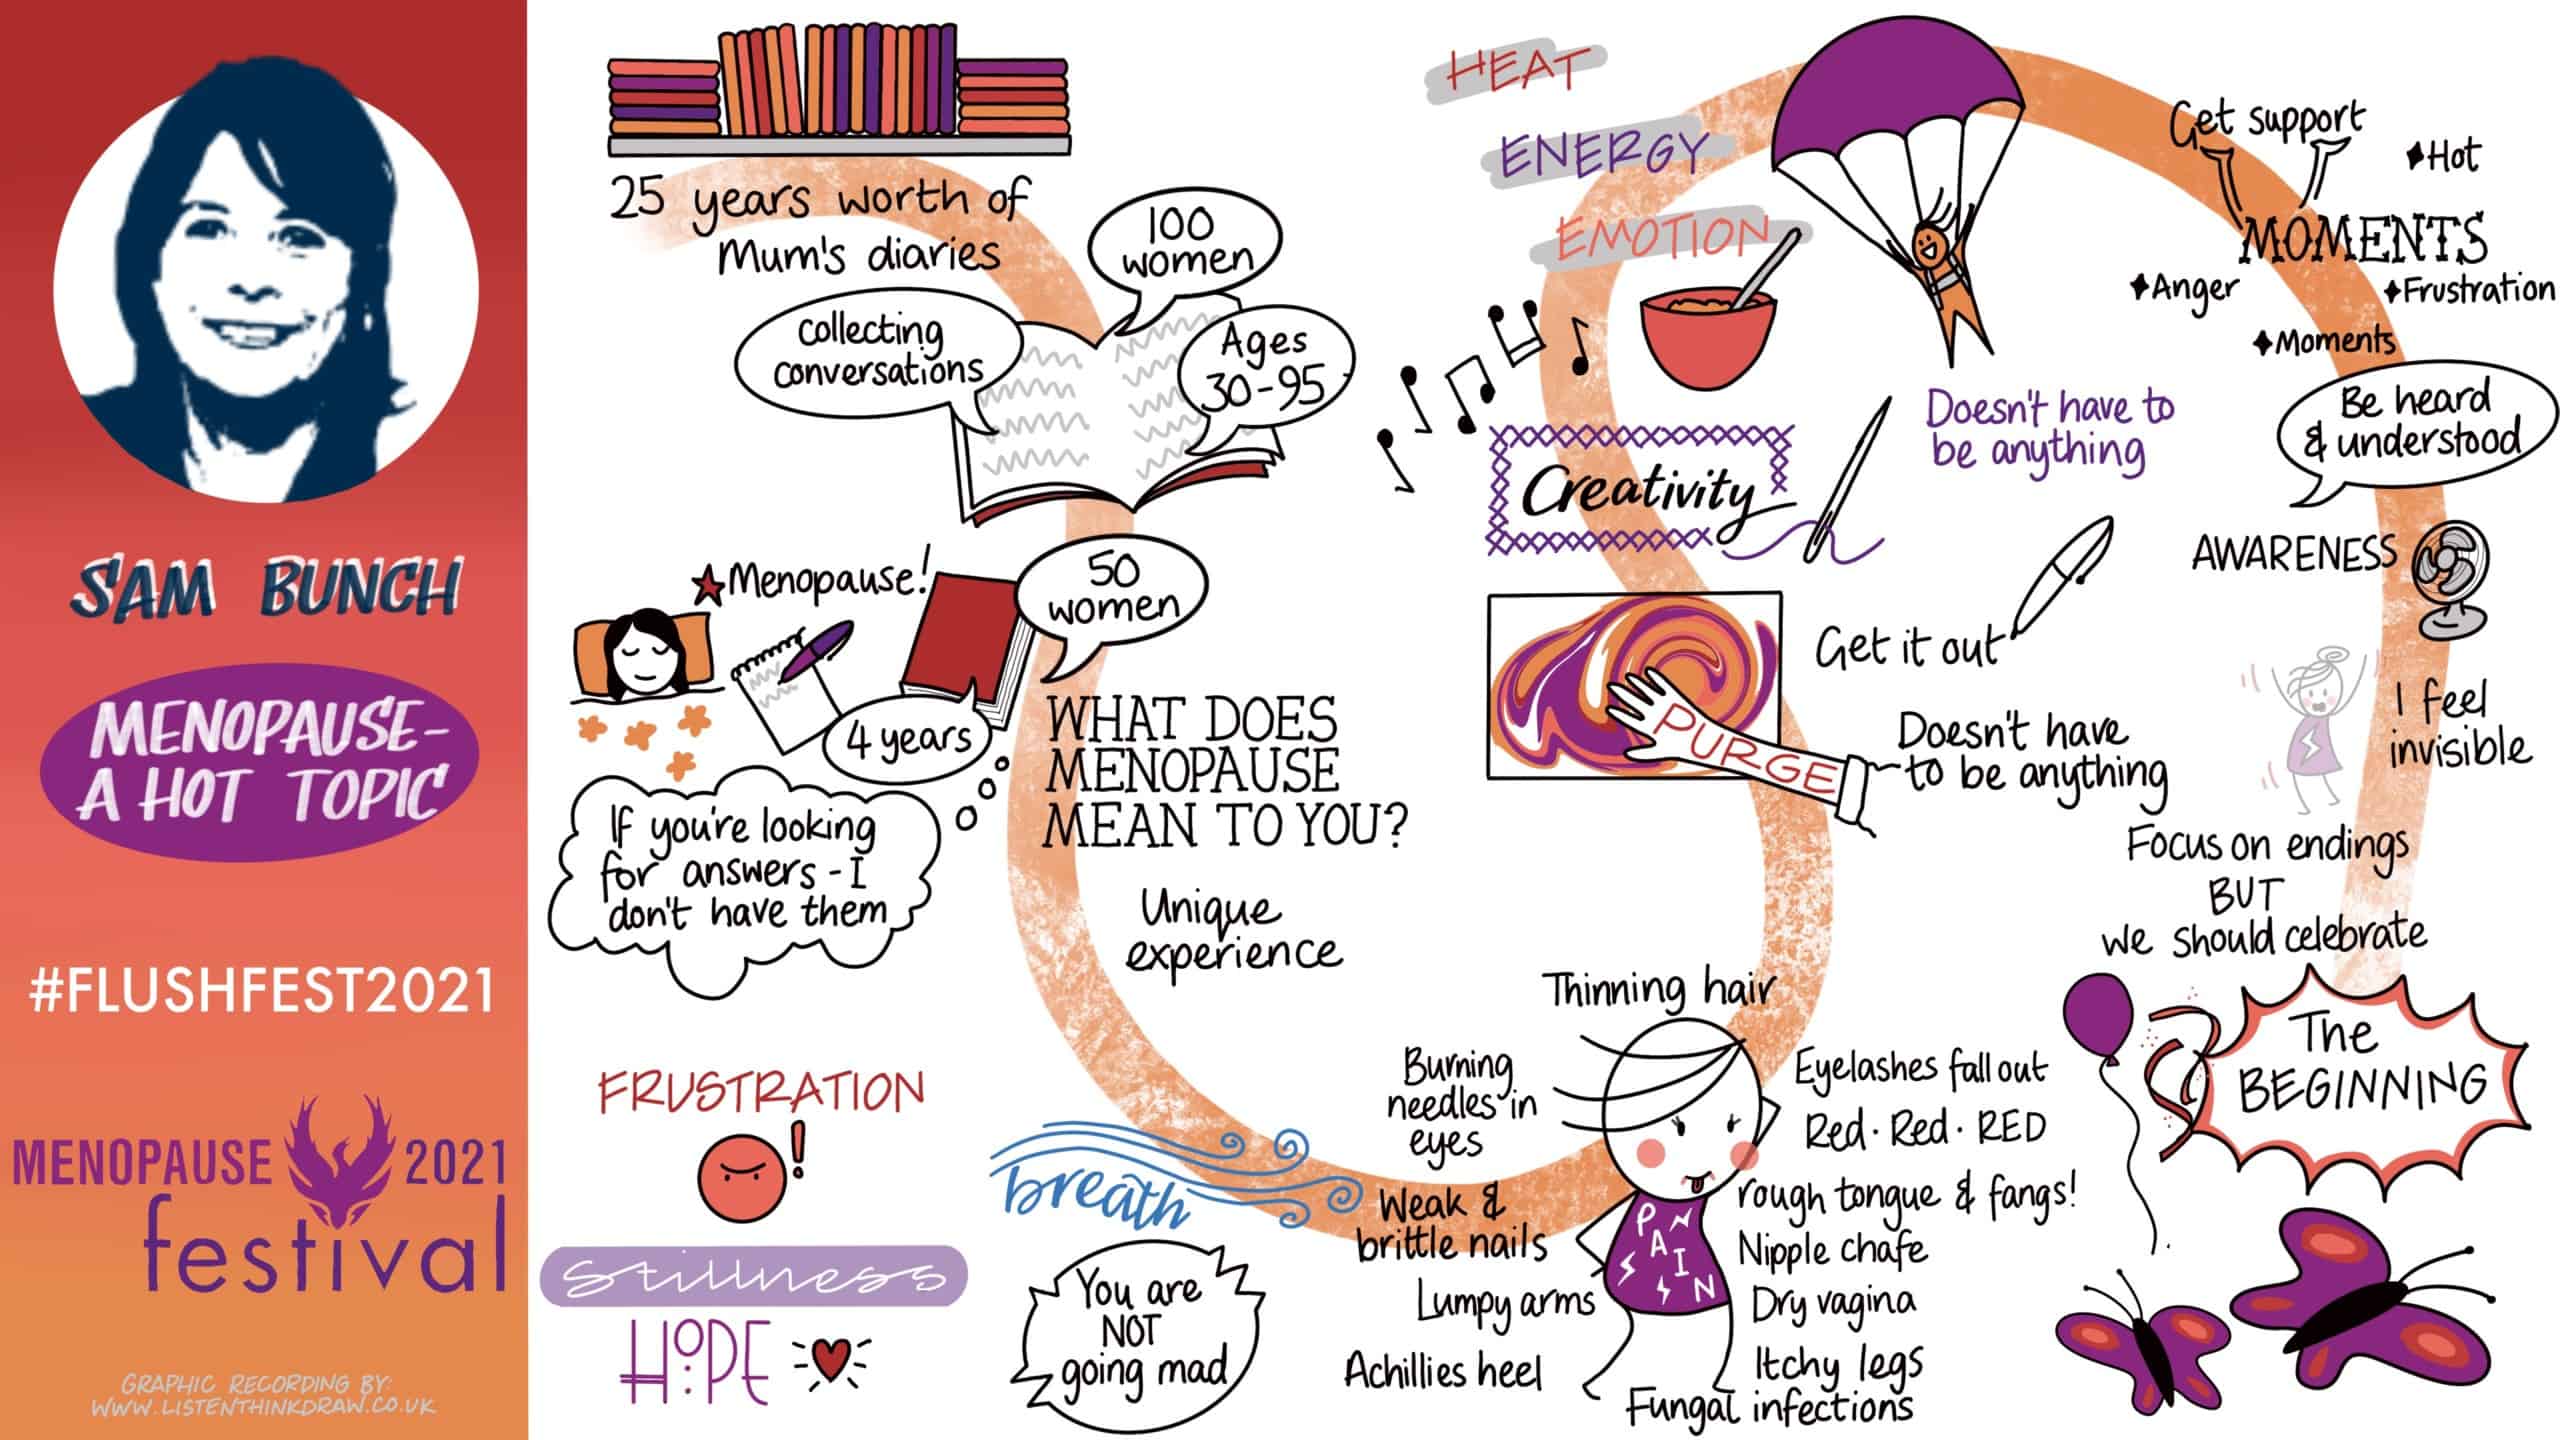 SAM BUNCH
MENOPAUSE-
A HOT TOPIC
#FLUSHFEST2021
MENOPAUSE 2021
festival
GRAPHIC RECORDING BY:
WWW.LISTENTHINKDRAW.CO.UK
25 years worth of
Mum's diaries
100
women
Collecting
conversations
Ages
30-95
Menopause!
50
women
4 years
If you're looking
for answers - I
don't have them
WHAT DOES
MENOPAUSE
MEAN TO YOU?
Unique
experience
FRUSTRATION
!
Stillness
HOPE
breath
You are
NOT
going mad
Thinning hair
Burning
needles in
eyes
Weak &
brittle nails
Lumpy arms
Achillies heel
Eyelashes fall out
Red · Red · RED
rough tongue & fangs!
Nipple chafe
Dry vagina
Itchy legs
Fungal infections
PAIN
HEAT
ENERGY
EMOTION
Creativity
Doesn't have to
be anything
Get it out
PURGE
Doesn't have
to be anything
Get support
Hot
MOMENTS
Anger
Frustration
Moments
Be heard
& understood
AWARENESS
I feel
invisible
Focus on endings
BUT
we should celebrate
The
BEGINNING